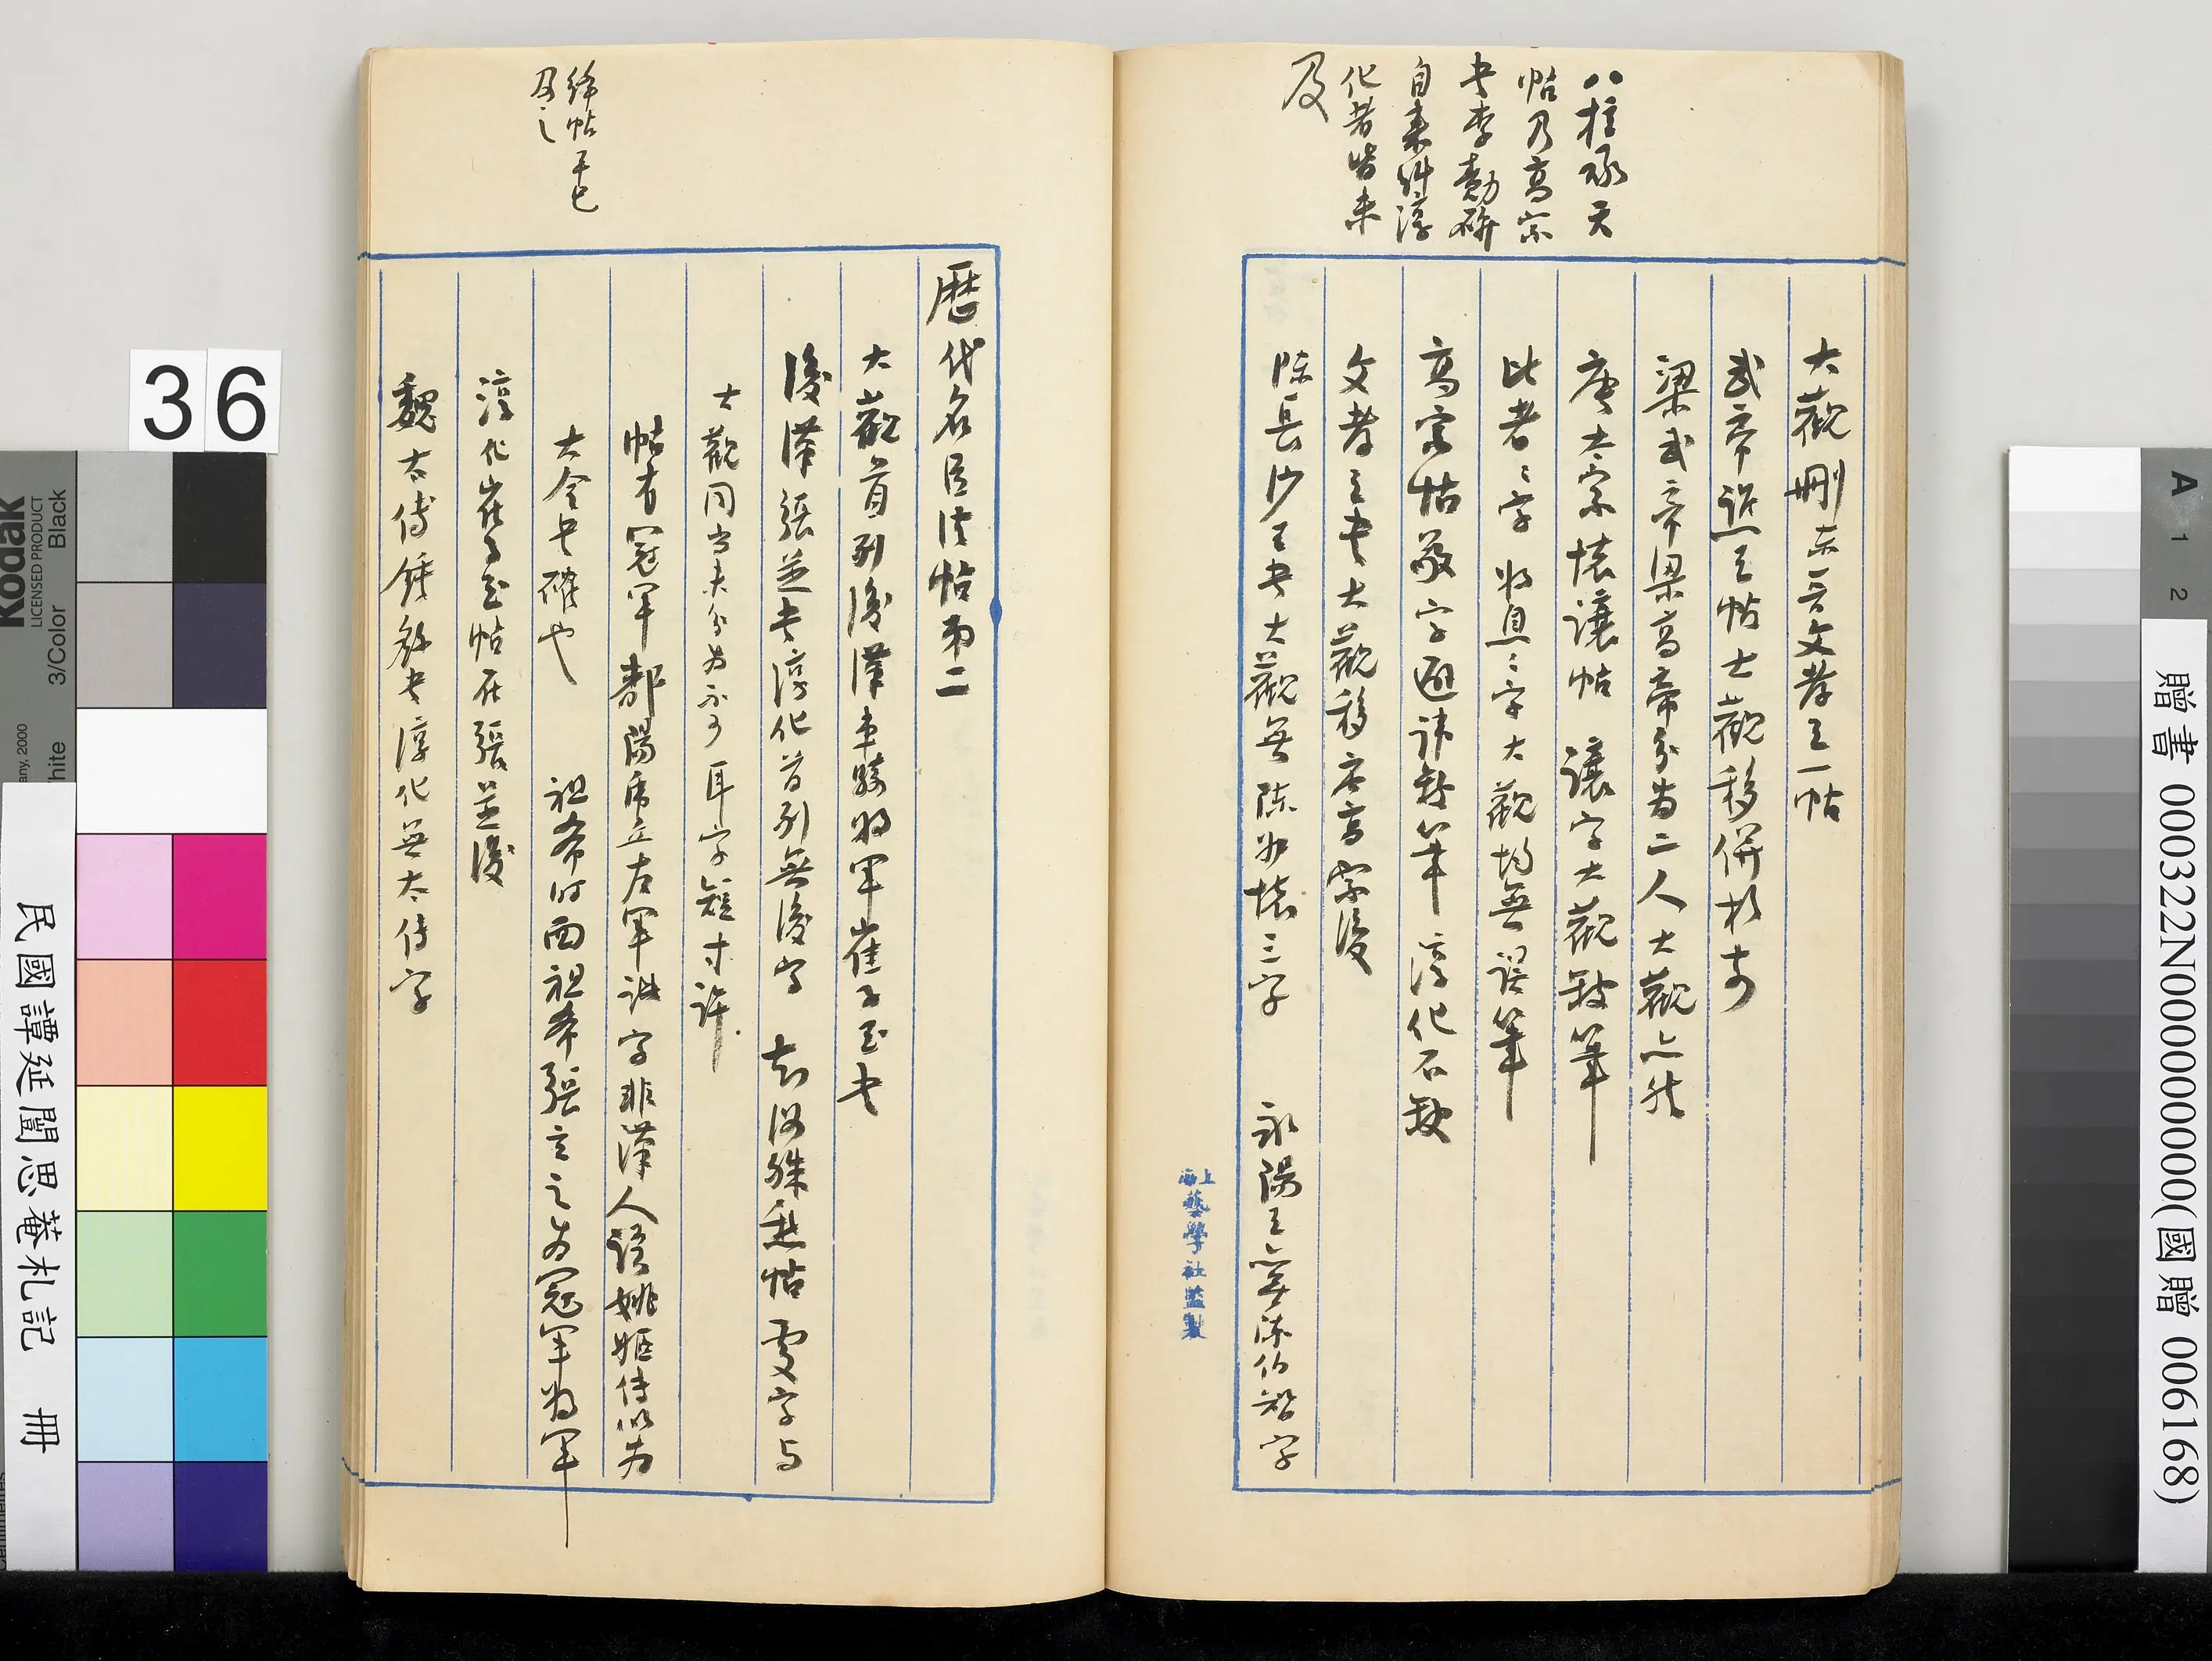 八柱承天
帖乃高宗
書李勣碑
自來側淳
化者皆未
及
大觀刪去晉文孝王一帖
武帝 帖大觀移併於
梁武帝梁高帝分為二人大觀亦然
唐太宗懷讓帖 讓字大觀缺筆
比者三字 將息三字大觀均無誤筆
高宗帖敬字避諱缺筆 淳化不缺
文孝王書大觀移在高宗後
陳長沙王書大觀無陳叔懷三字 永陽王亦無陳伯智字
上海藝學社監製
絳帖平已
及之
歷代名臣法帖第二
大觀首列後漢車騎將軍崔子玉書
後漢張芝書淳化首列無後字 知汝殊愁帖 處字與
大觀同 未分為不可 耳字短寸許
帖有冠軍 鄱陽 立左軍 字非漢人語姚姬傳以為
大令書確也 祖希時面祖希張玄之為冠軍將軍
淳化崔子玉帖在張芝後
魏太傅鍾繇書淳化無太傅字
36
Kodak
LICENSED PRODUCT
3/Color
Black
White
A 1 2
民國譚延闓思菴札記 冊
贈書 000322N000000000(國贈 006168)